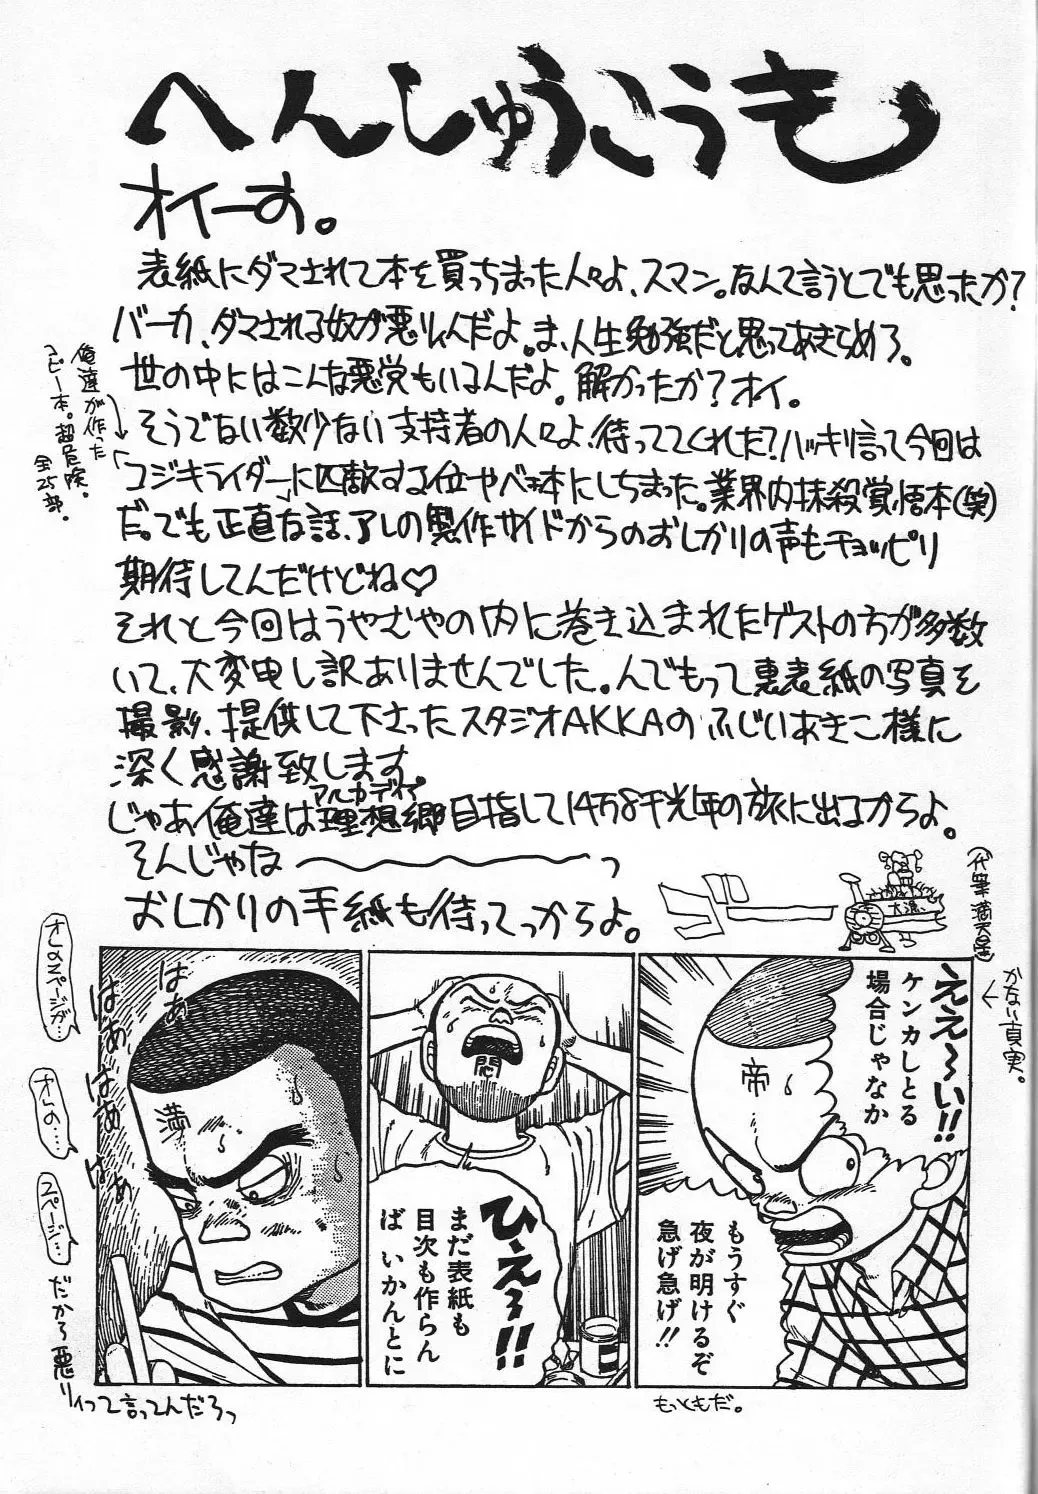 へんしゅうこうき
オイーす。
表紙にダマされて本を買っちまった人々よ、スマン。なんて言うとでも思ったか?
バーカ、ダマされる奴が悪りぃんだよ。ま、人生勉強だと思ってあきらめろ。
世の中にはこんな悪党もいるんだよ。解かったか?オイ。
そうでない数少ない支持者の人々よ、待っててくれた?ハッキリ言って今回は
「コジキライダー」に匹敵する位ヤベェ本にしちまった。業界内抹殺覚悟本(笑)
だ。でも正直な話、アレの製作サイドからのおしかりの声もチョッピリ
期待してんだけどね♡
それと今回はうやむやの内に巻き込まれたゲストの方が多数
いて、大変申し訳ありませんでした。んでもって裏表紙の写真を
撮影、提供して下さったスタジオAKKAのふじいあきこ様に
深く感謝致します。
じゃあ俺達は理想郷目指して14万8千光年の旅に出るからよ。
アルカディア
そんじゃな〜〜〜っ
おしかりの手紙も待ってっからよ。
俺達が作った
コピー本。超危険。
全25部。
(代筆 満天星)
ええ〜い!!
ケンカしとる
場合じゃなか
帝
もうすぐ
夜が明けるぞ
急げ急げ!!
←かない真実。
もっともだ。
悶
ひえ〜!!
まだ表紙も
目次も作らん
ば いかんとに
はぁ
はぁ
はぁ
はぁ
満
オレのページが…
オレの…
ページ…
だから悪りィって言ってんだろっ